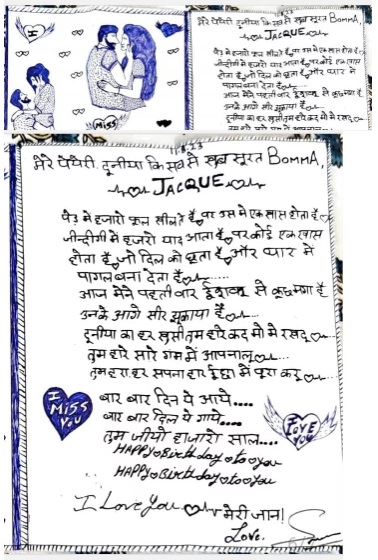 I
MISS
11.8.23
मेरे पेपेरी, दूनीया कि सब से खुब सूरत BOMMA,
JACQUE
पेड़ मे हजारो फुल खीलते है, पर उस मे एक खास होता है
जीन्दीगी मे हजारो याद आता है, पर कोई एक खास
होता है, जो दिल को छुता है, और प्यार में
पागल बना देता है
आज मेने पहली बार
से कुछ मगा है
उनके आगे सीर झुकाया है
दूनीया का हर खुसी तुम हारे कद मो मे रखदू
तुम हारे सारे गम में आपनालू
तुम हारा हर सपना हार
में पूरा करू
I
MISS
YOU
बार बार दिन ये आये....
बार बार दिल ये गाये....
तुम जीयो हाजारो साल....
HAPPY Birthday to you
HAPPY Birthday to you
I
LOVE
YOU
I Love You मेरी जान!
Love.